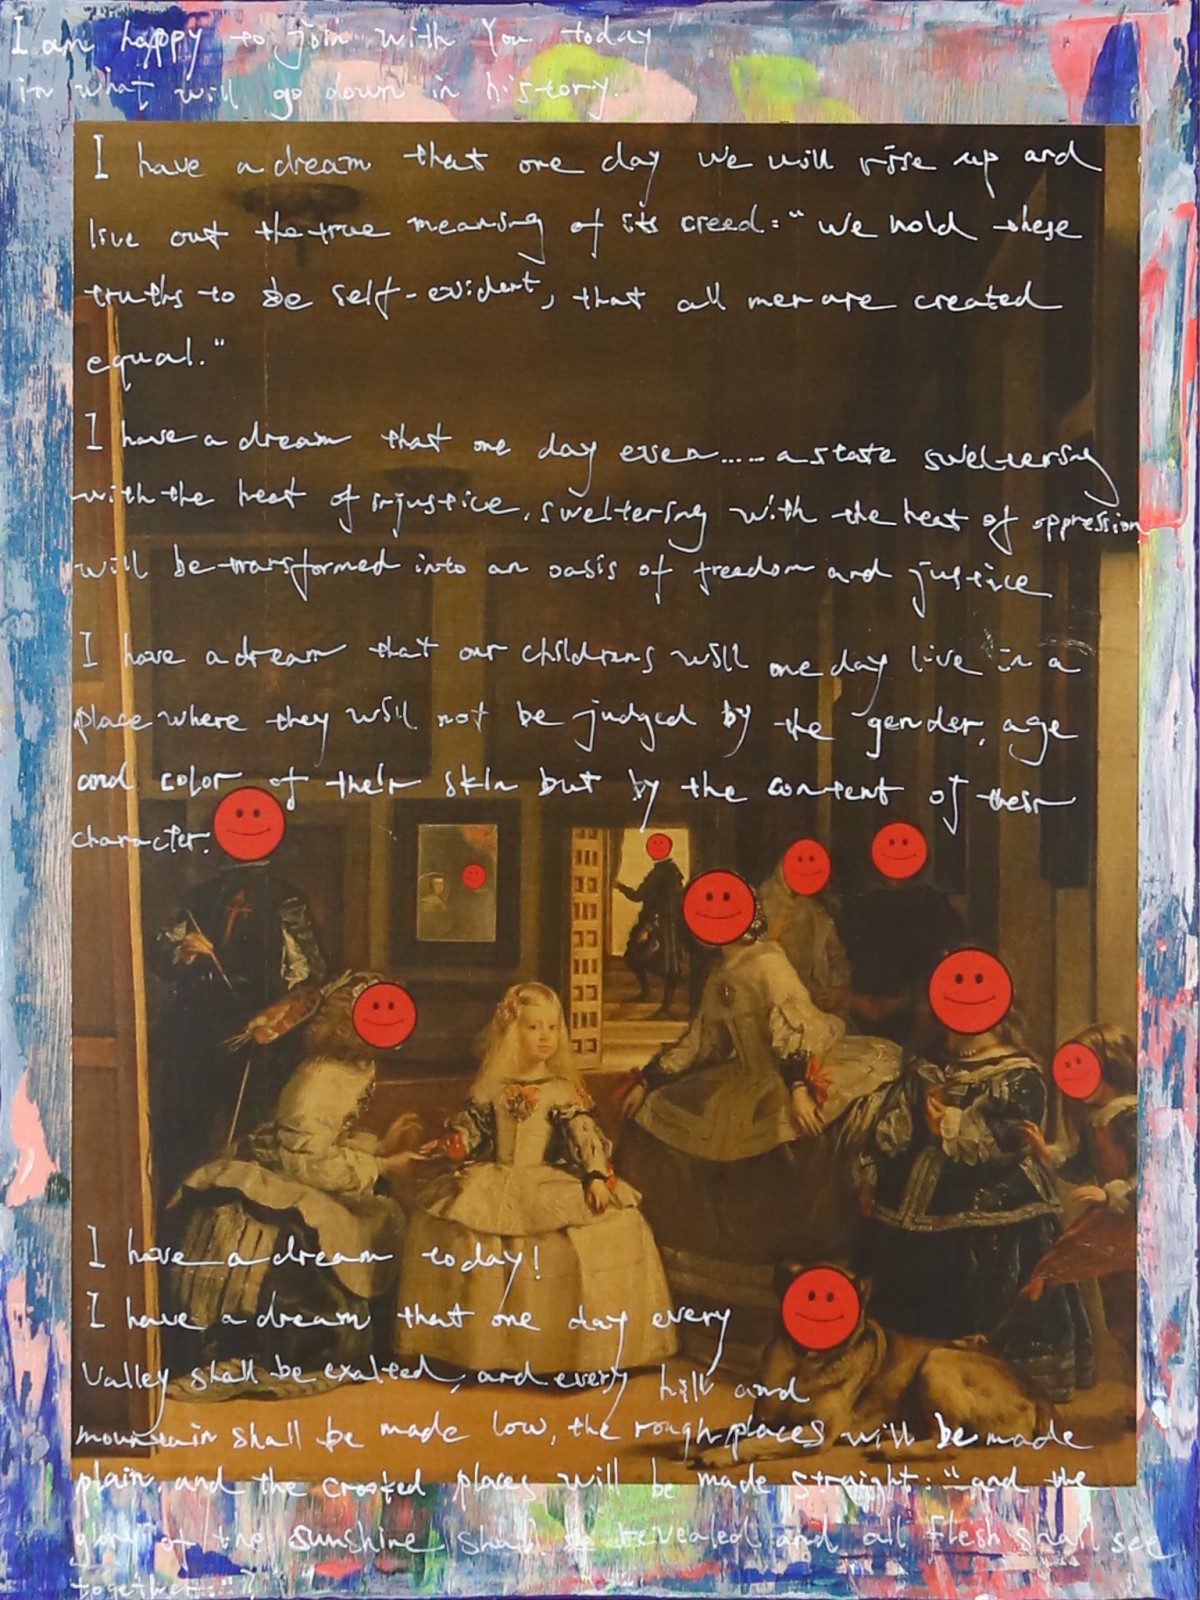 I am happy to join with You today
in what will go down in history.
I have a dream that one day we will rise up and
live out the true meaning of its creed: "We hold these
truths to be self-evident, that all men are created
equal."
I have a dream that one day even..... a state sweltering
with the heat of injustice, sweltering with the heat of oppression
will be transformed into an oasis of freedom and justice
I have a dream that our childrens will one day live in a
place where they will not be judged by the gender, age
and color of their skin but by the content of their
character.
I have a dream today!
I have a dream that one day every
Valley shall be exalted, and every hill and
mountain shall be made low, the rough places will be made
plain, and the crooked places will be made straight: "and the
glory of the sunshine shall be revealed and all flesh shall see
together."